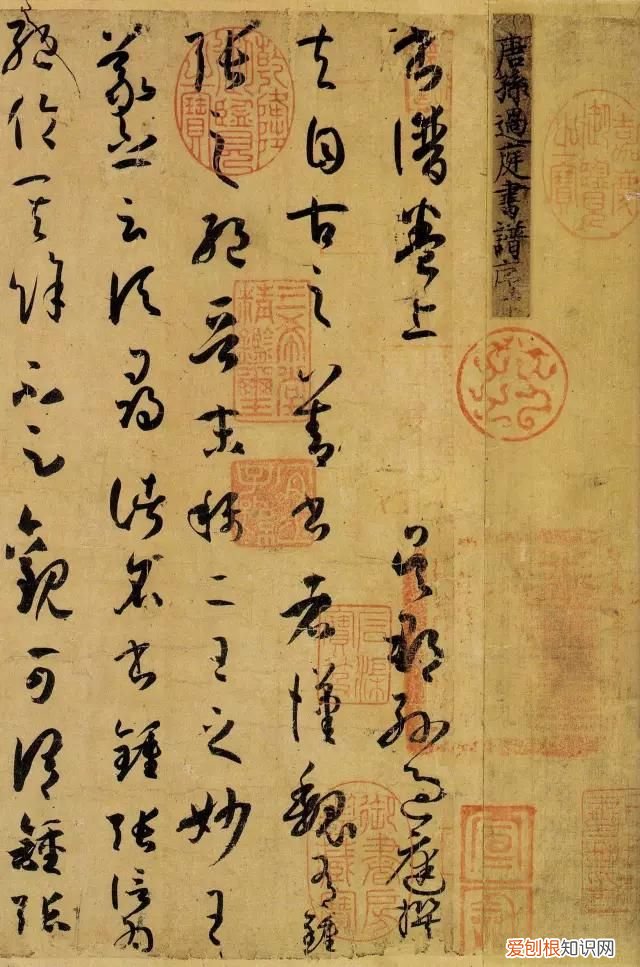 唐孫過庭書譜序
書譜卷上
吳郡孫過庭撰
夫自古之善書者漢魏有鍾
張之絕晉末稱二王之妙王
羲之云頃尋諸名書鍾張信為
絕倫其餘不足觀可謂鍾張
嘉慶御覽之寶
乾隆御覽之寶
三希堂精鑑璽
宜子孫
石渠寶笈
爱刨根知识网